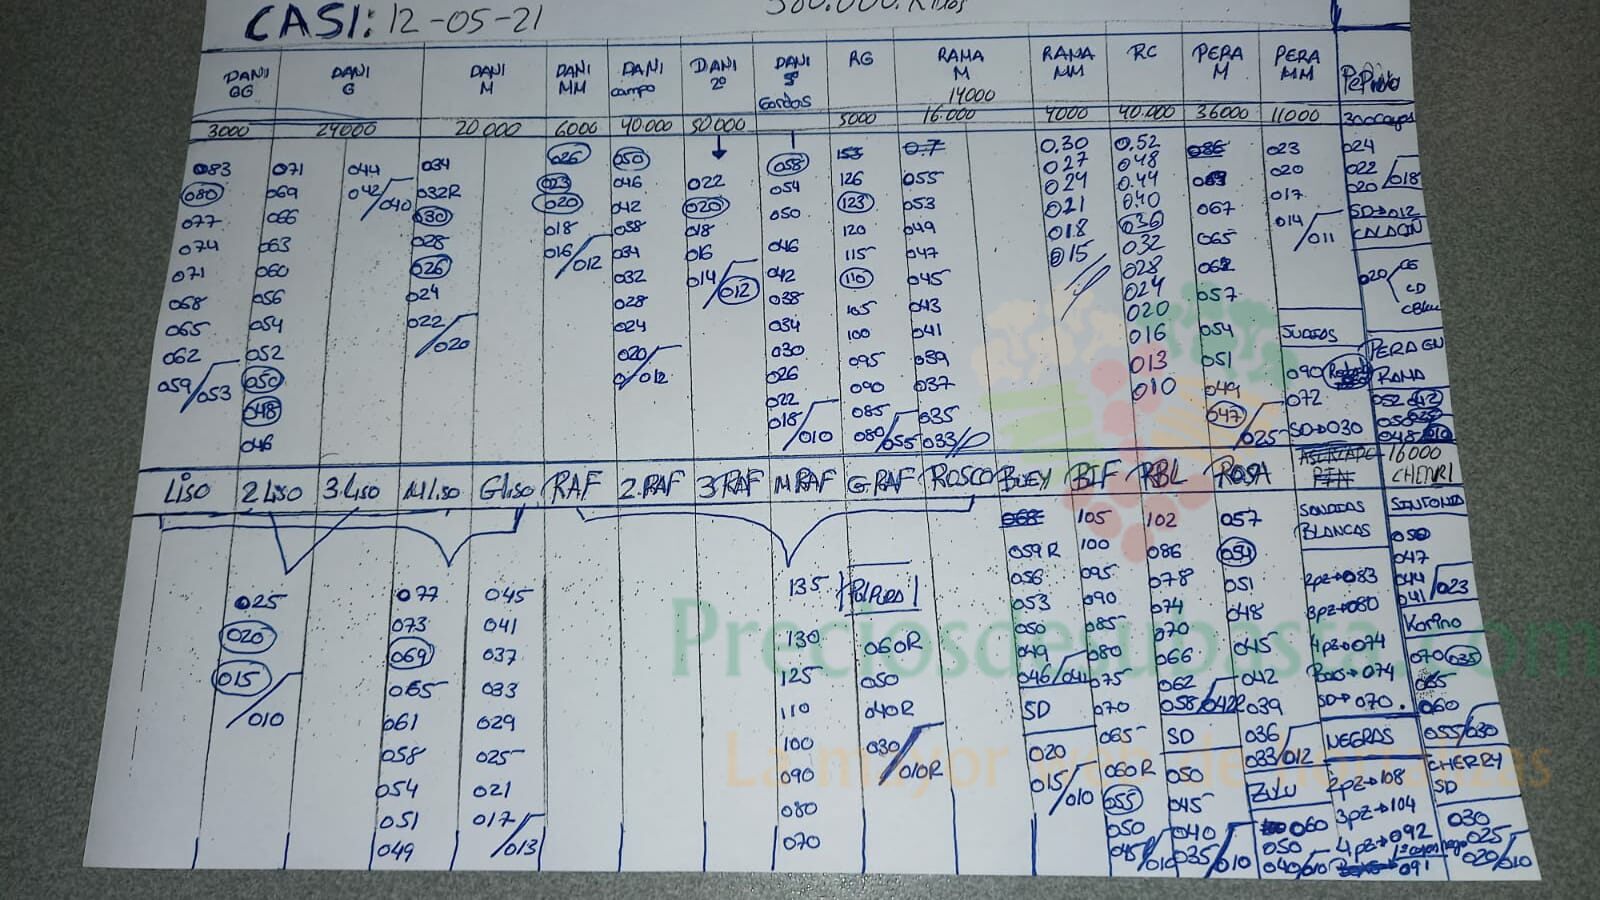 CASI: 12-05-21
DANI GG DANI G DANI M DANI MM DANI campo DANI 2º DANI Gordos RG RAMA M 14000 RAMA MM RC PERA M PERA MM PePino
3000 24000 20.000 6000 40.000 50.000 5000 16.000 4000 40.000 36000 11000
083 071 044 034 026 050 058 126 055 0.30 0.52 023 024
080 069 042/040 032R 023 046 022 054 123 053 027 0.48 020 022
077 066 030 020 042 020 050 120 049 024 0.44 067 017 020/018
074 063 028 018 038 018 046 115 047 021 0.40 065 014/011 SD→012
071 060 026 016/012 034 016 042 110 045 018 036 062
068 056 024 032 014/012 038 105 043 015 032 057 020
065 054 022/020 028 034 100 041 028 054 CD
062 052 024 030 095 039 024 051
059/053 050 020/012 026 090 037 020 049 090 PERA GN
048 022 085 035 016 047/025 072 RAMA
046 018/010 080/055 033/ 013 SD→030 052
010
Liso 2 Liso 3 Liso M Liso G Liso RAF 2.RAF 3 RAF M RAF G.RAF ROSCO BUEY BIF RBL ROSA 16000 CHERRI
068 105 102 057 SONADAS BLANCAS SINTONIA
059R 100 086 054 050
025 077 045 135 Pulpura 056 095 078 051 2pz→083 047
020 073 041 130 060R 053 090 074 048 3pz→080 044
015/010 069 037 125 050 050 085 070 045 4pz→074 041/023
065 033 110 040R 049 080 066 042 →074 Korino
061 029 100 030/010R 046/041 075 062 039 SD→070. 070 035
058 025 090 SD 070 058/042R 036 NEGRAS 065
054 021 080 020 065 SD 033/012 2pz→108 060
051 017/013 070 015/010 060R 050 ZULU 3pz→104 055/030
049 055 045 060 4pz→092 CHERRY SD
050 040 050 →091 030
045/010 035/010 040/010 025
020/010
Preciosdesubasta.com
La mayor web de hortalizas